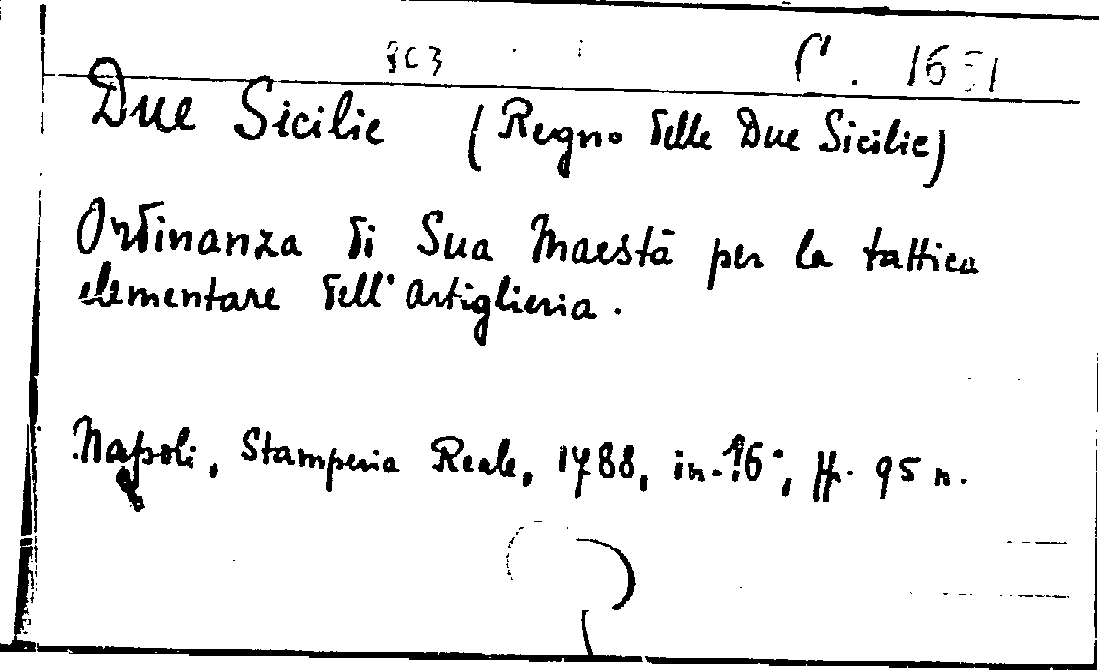 C. 1651
Due Sicilie (Regno delle Due Sicilie)
Ordinanza di Sua Maestà per la tattica
elementare dell'artiglieria.
Napoli, Stamperia Reale, 1788, in-16°, ff. 95 n.